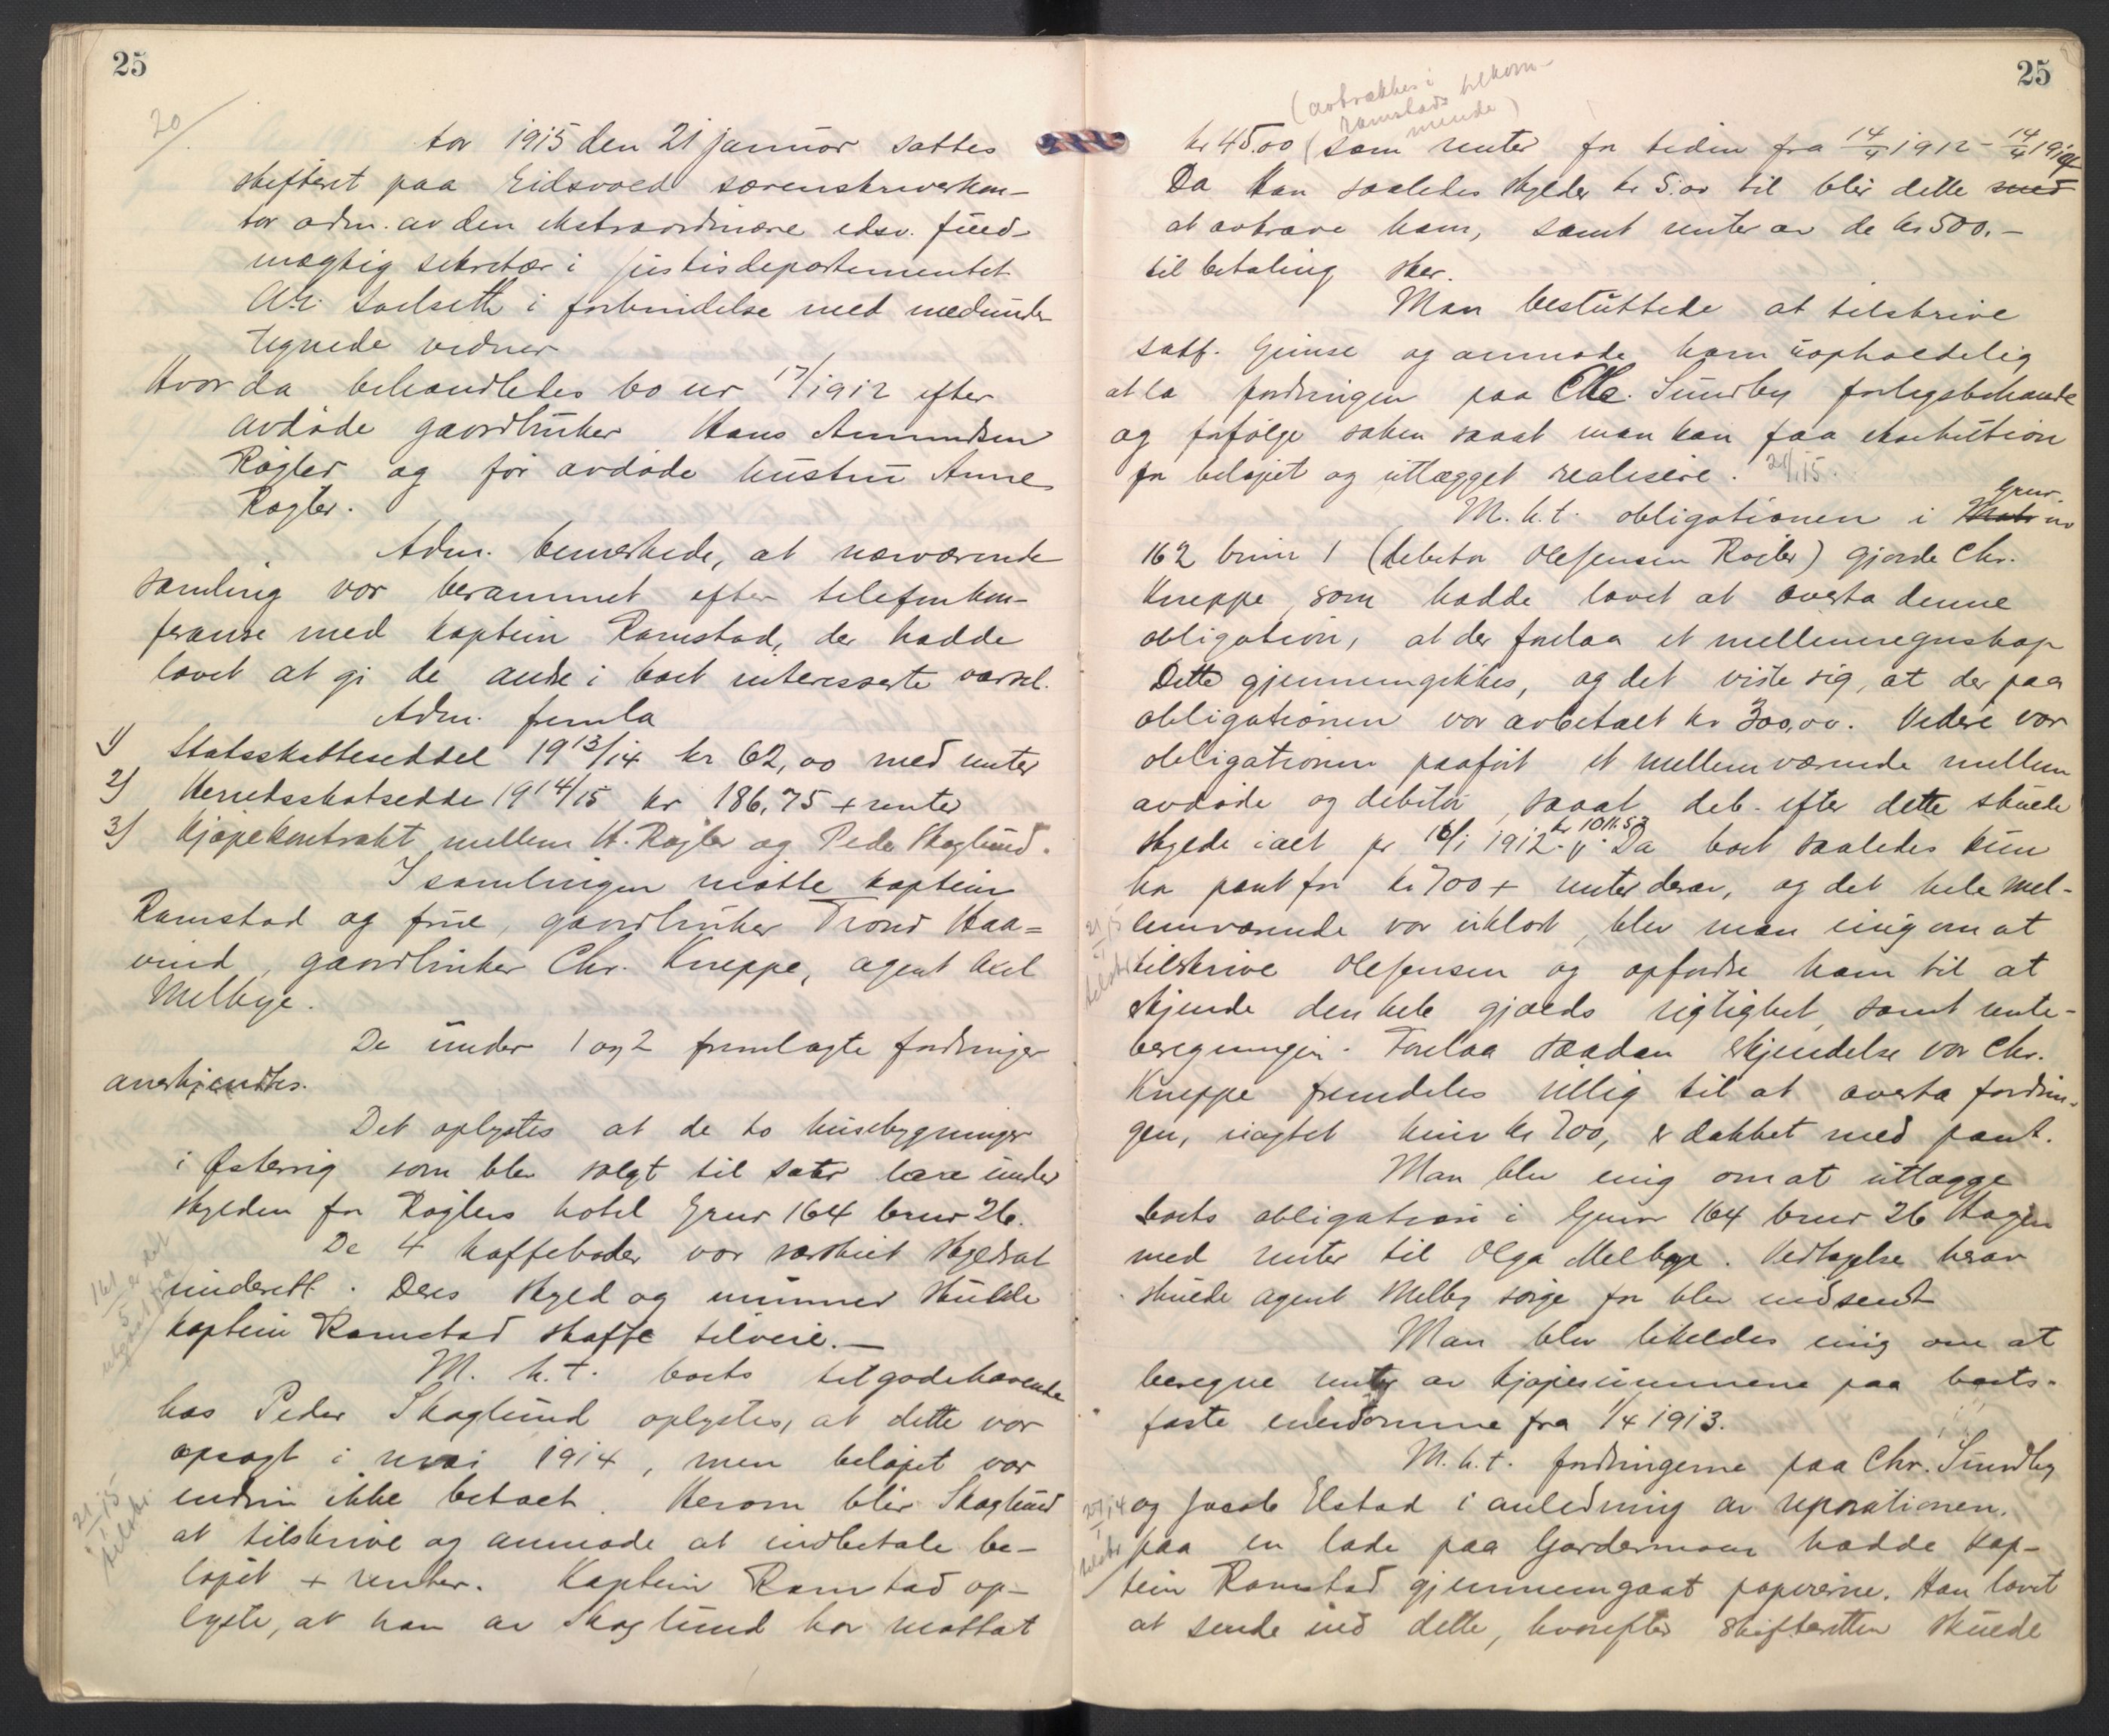 25
20/
Aar 1915 den 21 januar sattes
skifteret paa Eidsvold sorenskriverkon-
tor adm. av den ekstraordinære edsv. fuld-
mægtig sekretær i justisdepartementet
Solseth i forbindelse med medunder-
tegnede vidner
Hvor da behandledes bo nr 17/1912 efter
avdøde gaardbruker Hans Amundsen
Røgler og før avdøde hustru Anne
Røgler.
Adm. bemerkede, at nærværende
samling var berammet efter telefonkon-
feranse med kaptein Ramstad, der hadde
lovet at gi de andre i boet interesserte varsel.
Adm. fremla
1) Statsskatteseddel 1913/14 kr 62,00 med renter
2) Herredsskatsedde 1914/15 kr 186,75 + renter
3) Kjøpekontrakt mellem H. Røgler og Peder Skoglund.
I samlingen møtte kaptein
Ramstad og frue, gaardbruker Trond Haa=
vind, gaardbruker Chr. Kneppe, agent Axel
Melbye.
De under 1 og 2 fremlagte fordringer
anerkjendtes.
Det oplystes at de to husebygninger
i Østerrig som blev solgt til Sætr lære under
skylden for Røglers hotel Grnr 164 brnr 26.
De 4 kaffeboder var særskilt skyldsat
underett. Deres skyld og nummer skulde
kaptein Ramstad skaffe tilveie.—
M. h. t. boets tilgodehavende
hos Peder Skoglund oplystes, at dette var
opsagt i mai 1914, men beløpet var
endnu ikke betalt. Herom blir Skoglund
21/1 15 tilskr.
at tilskrive og anmode at indbetale be-
løpet + renter. Kaptein Ramstad op-
lyste, at han av Skoglund har mottat
25
(avtrækkes i
Ramstads tilkom-
mende)
kr 45.00 (som renter for tiden fra 14/4 1912 - 14/4 1914
Da han saaledes skylder kr 5.00 til blir dette med
at avkræve ham, samt renter av de kr 500.—
til betaling sker.
Man besluttede at tilskrive
sakf. Gimse og anmode ham uopholdelig
at la fordringen paa Chr. Sundby forligsbehandle
og forfølge saken saaat man kan faa eksekution
for beløpet og utlægget realisere. 21/1 15.
M. h. t. obligationen i Matr Grnr. nr
162 brnr 1 (debitor Ole Jensen Røgler) gjorde Chr.
Kneppe, som hadde lovet at overta denne
obligation, at der forelaa et mellemregnskap
Dette gjennemgikkes, og det viste sig, at der paa
obligationen var avbetalt kr 300,00. Videre var
obligationen paaført et mellemværende mellem
avdøde og debitor, saaat deb. efter dette skulde
skylde i alt pr 16/1 1912 kr 1011.53. Da boet saaledes kun
har pant for kr 700 + renter derav, og det hele mel-
lemværende var uklart, blev man enig om at
21/1 15 tilskr.
tilskrive Ole Jensen og opfordre ham til at
erkjende den hele gjælds rigtighet, samt rente-
beregningen. Forelaa saadan erkjendelse var Chr.
Kneppe fremdeles villig til at overta fordrin-
gen, uagtet kun kr 700, er dækket med pant.
Man blev enig om at utlægge
boets obligation i Grnr 164 brnr 26 Hagen
med renter til Olga Melbye. Vedtagelse herav
skulde agent Melby sørge for blev indsendt
Man blev likeledes enig om at
beregne renter av kjøpesummene paa boets
faste eiendomme fra 1/4 1913.
M. h. t. fordringerne paa Chr. Sundby
og Jacob Elstad i anledning av reparationen
paa en lade paa Gardermoen hadde kap-
tein Ramstad gjennemgaat papirerne. Han lovet
at sende ind dette, hvorefter skifteretten skulde